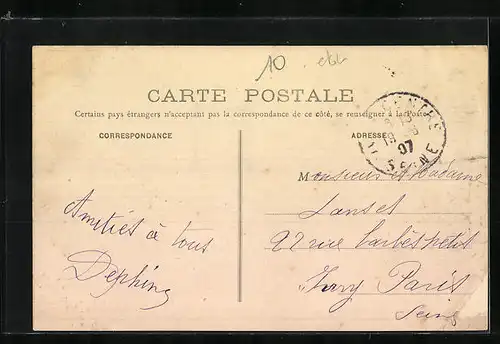 10
CARTE POSTALE
Certains pays étrangers n'acceptant pas la correspondance de ce côté, se renseigner à la Poste
CORRESPONDANCE
ADRESSE
07
SEINE
Monsieur et Madame
Lanset
22 rue Barbès petit
Ivry Paris
Seine
Amitiés à tous
Delphine